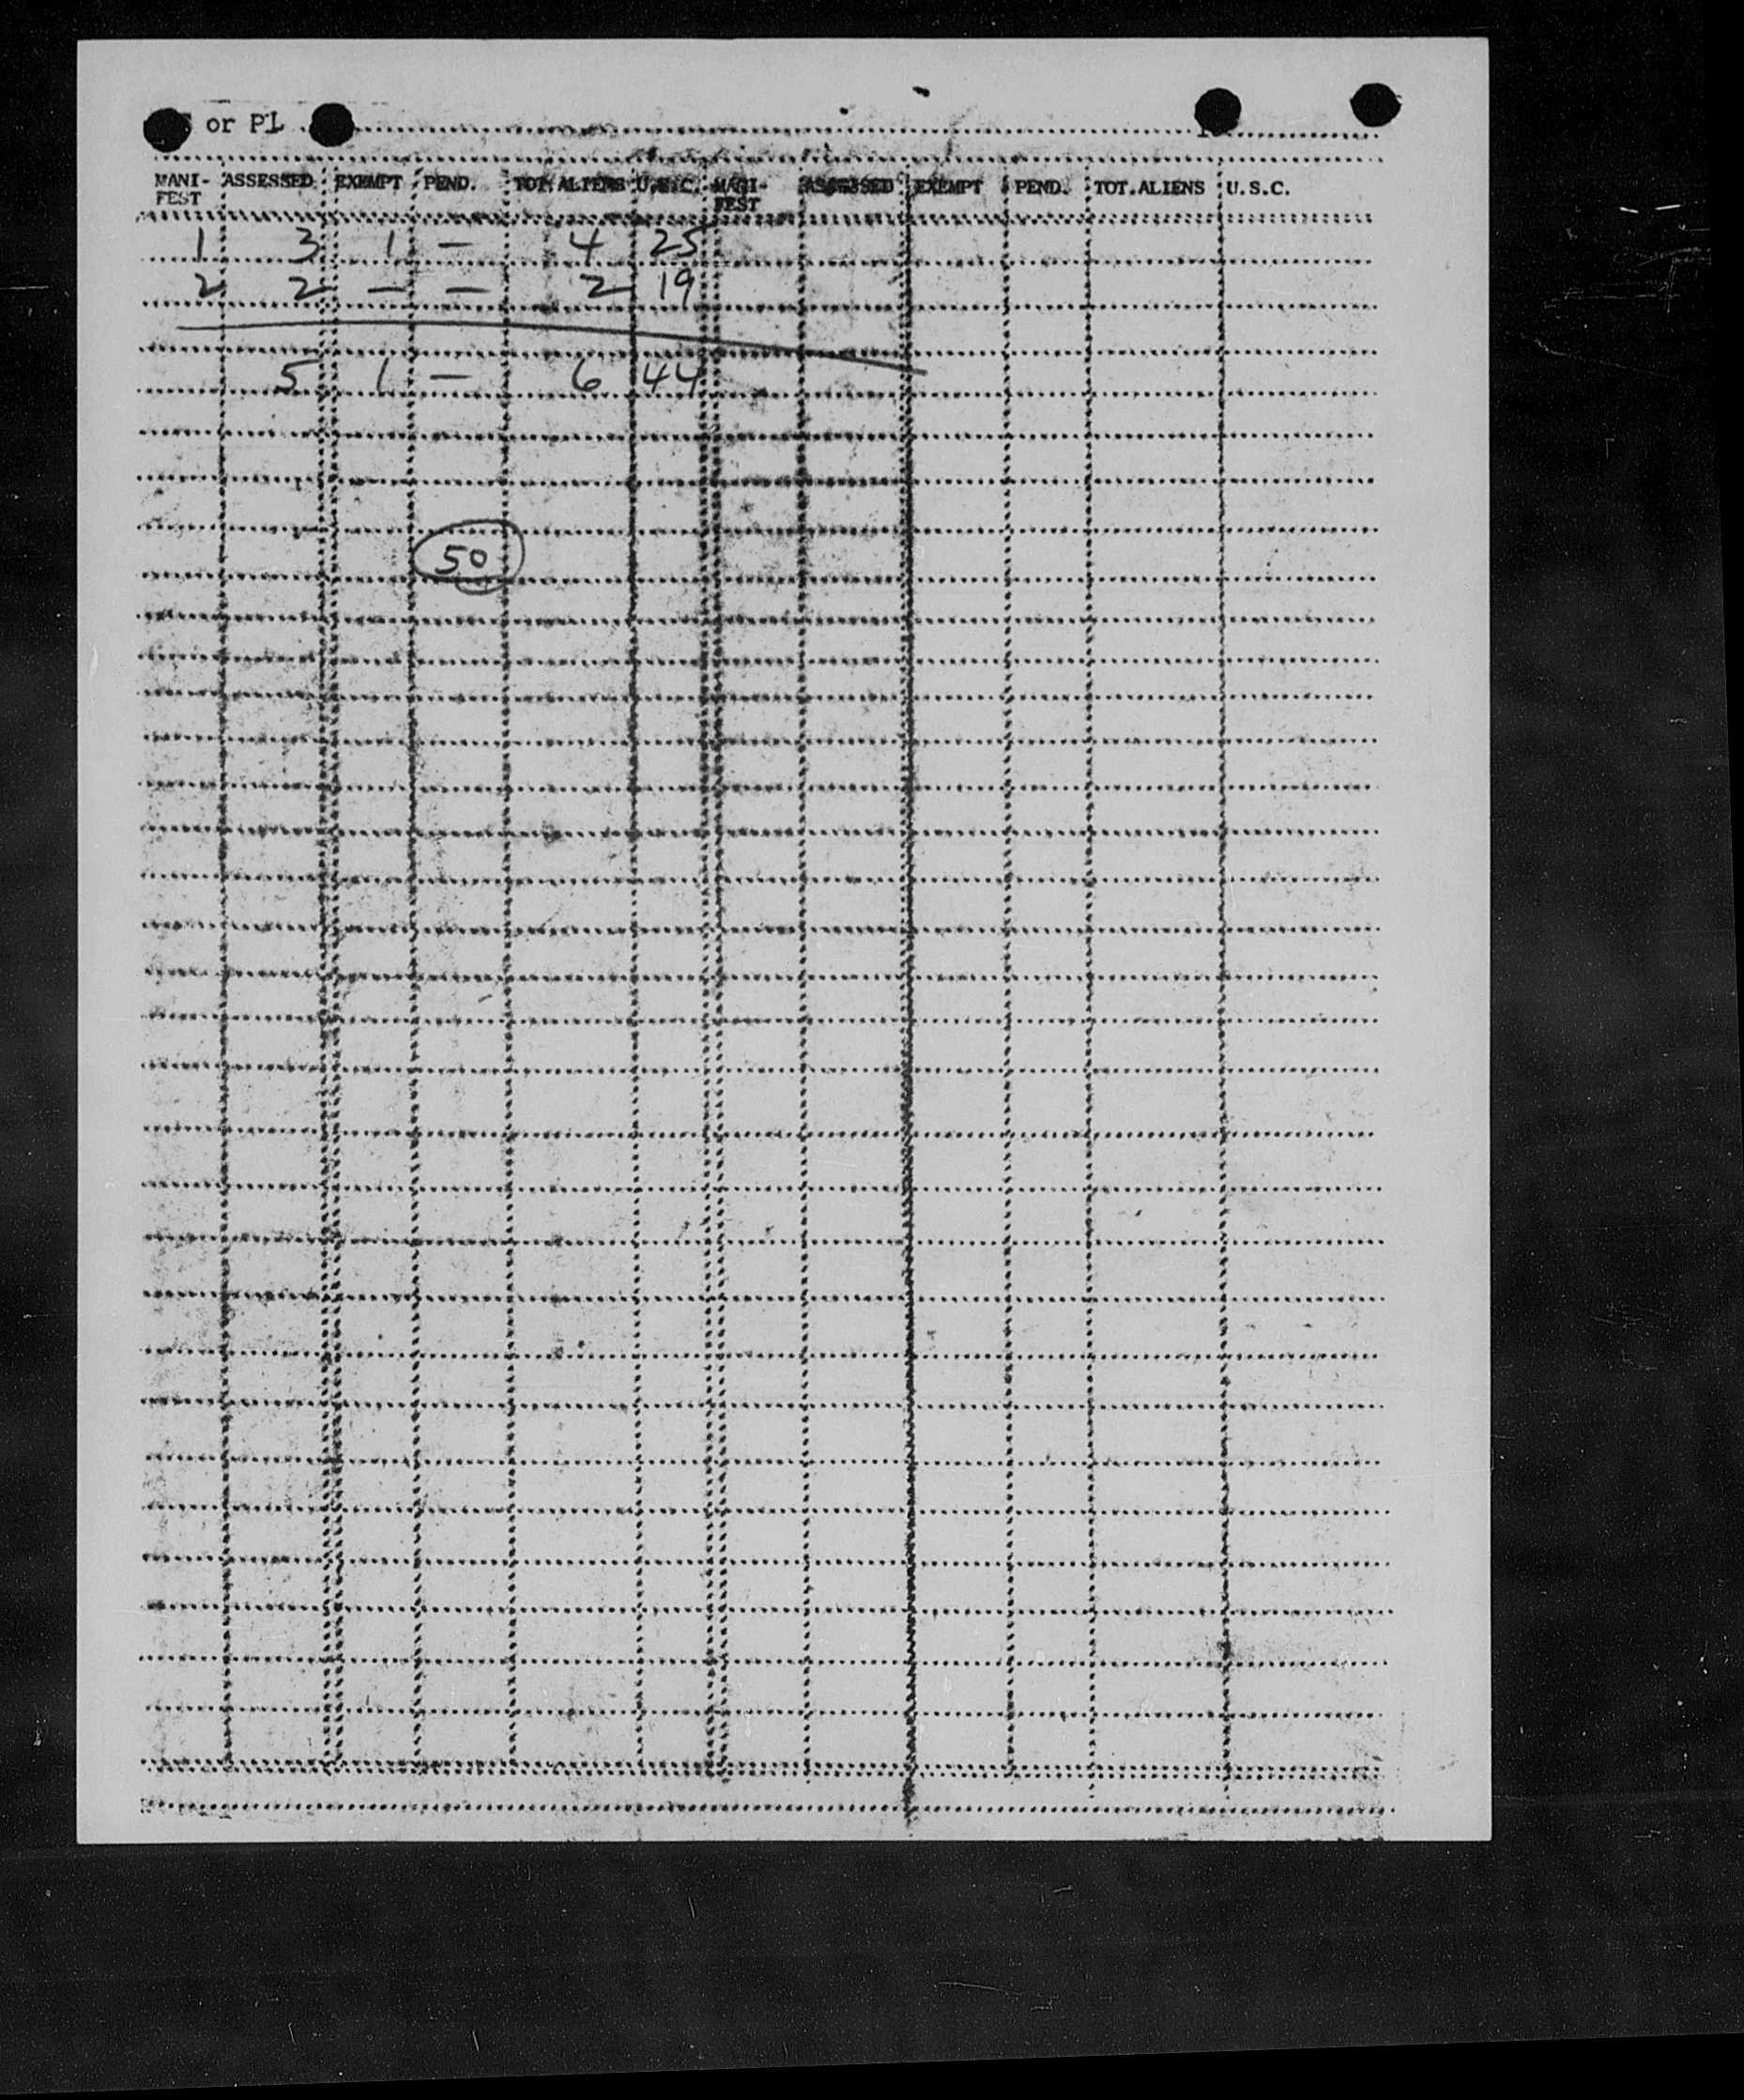 or PL
MANI- ASSESSED EXEMPT PEND. TOT.ALIENS U.S.C. MANI- ASSESSED EXEMPT PEND. TOT.ALIENS U.S.C.
FEST FEST
1 3 1 — 4 25
2 2 — — 2 19
5 1 — 6 44
50